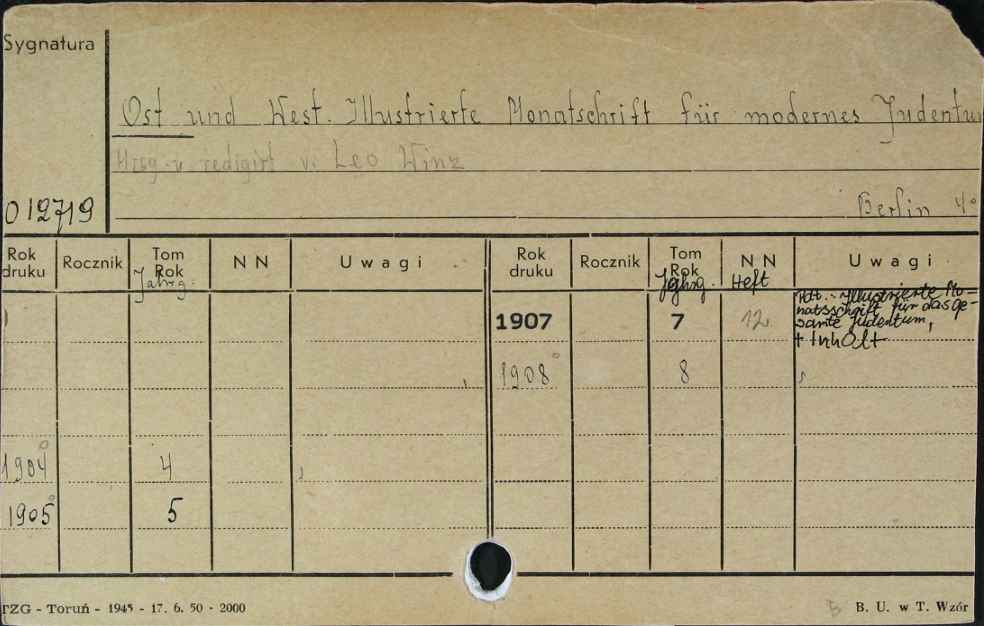 Sygnatura
Ost und West. Illustrierte Monatschrift für modernes Judentu
Hrsg. u. redigirt v. Leo Winz
012719
Berlin 4°
Rok druku Rocznik Tom Rok Jahrg. N N Uwagi Rok druku Rocznik Tom Rok Jahrg. N N Heft Uwagi
1907 7 12 Illustrierte Mo=
natsschrift für das ge=
samte Judentum,
+ Inhalt
1908 8
1904 4
1905 5
TZG - Toruń - 1945 - 17. 6. 50 - 2000
5 B. U. w T. Wzór